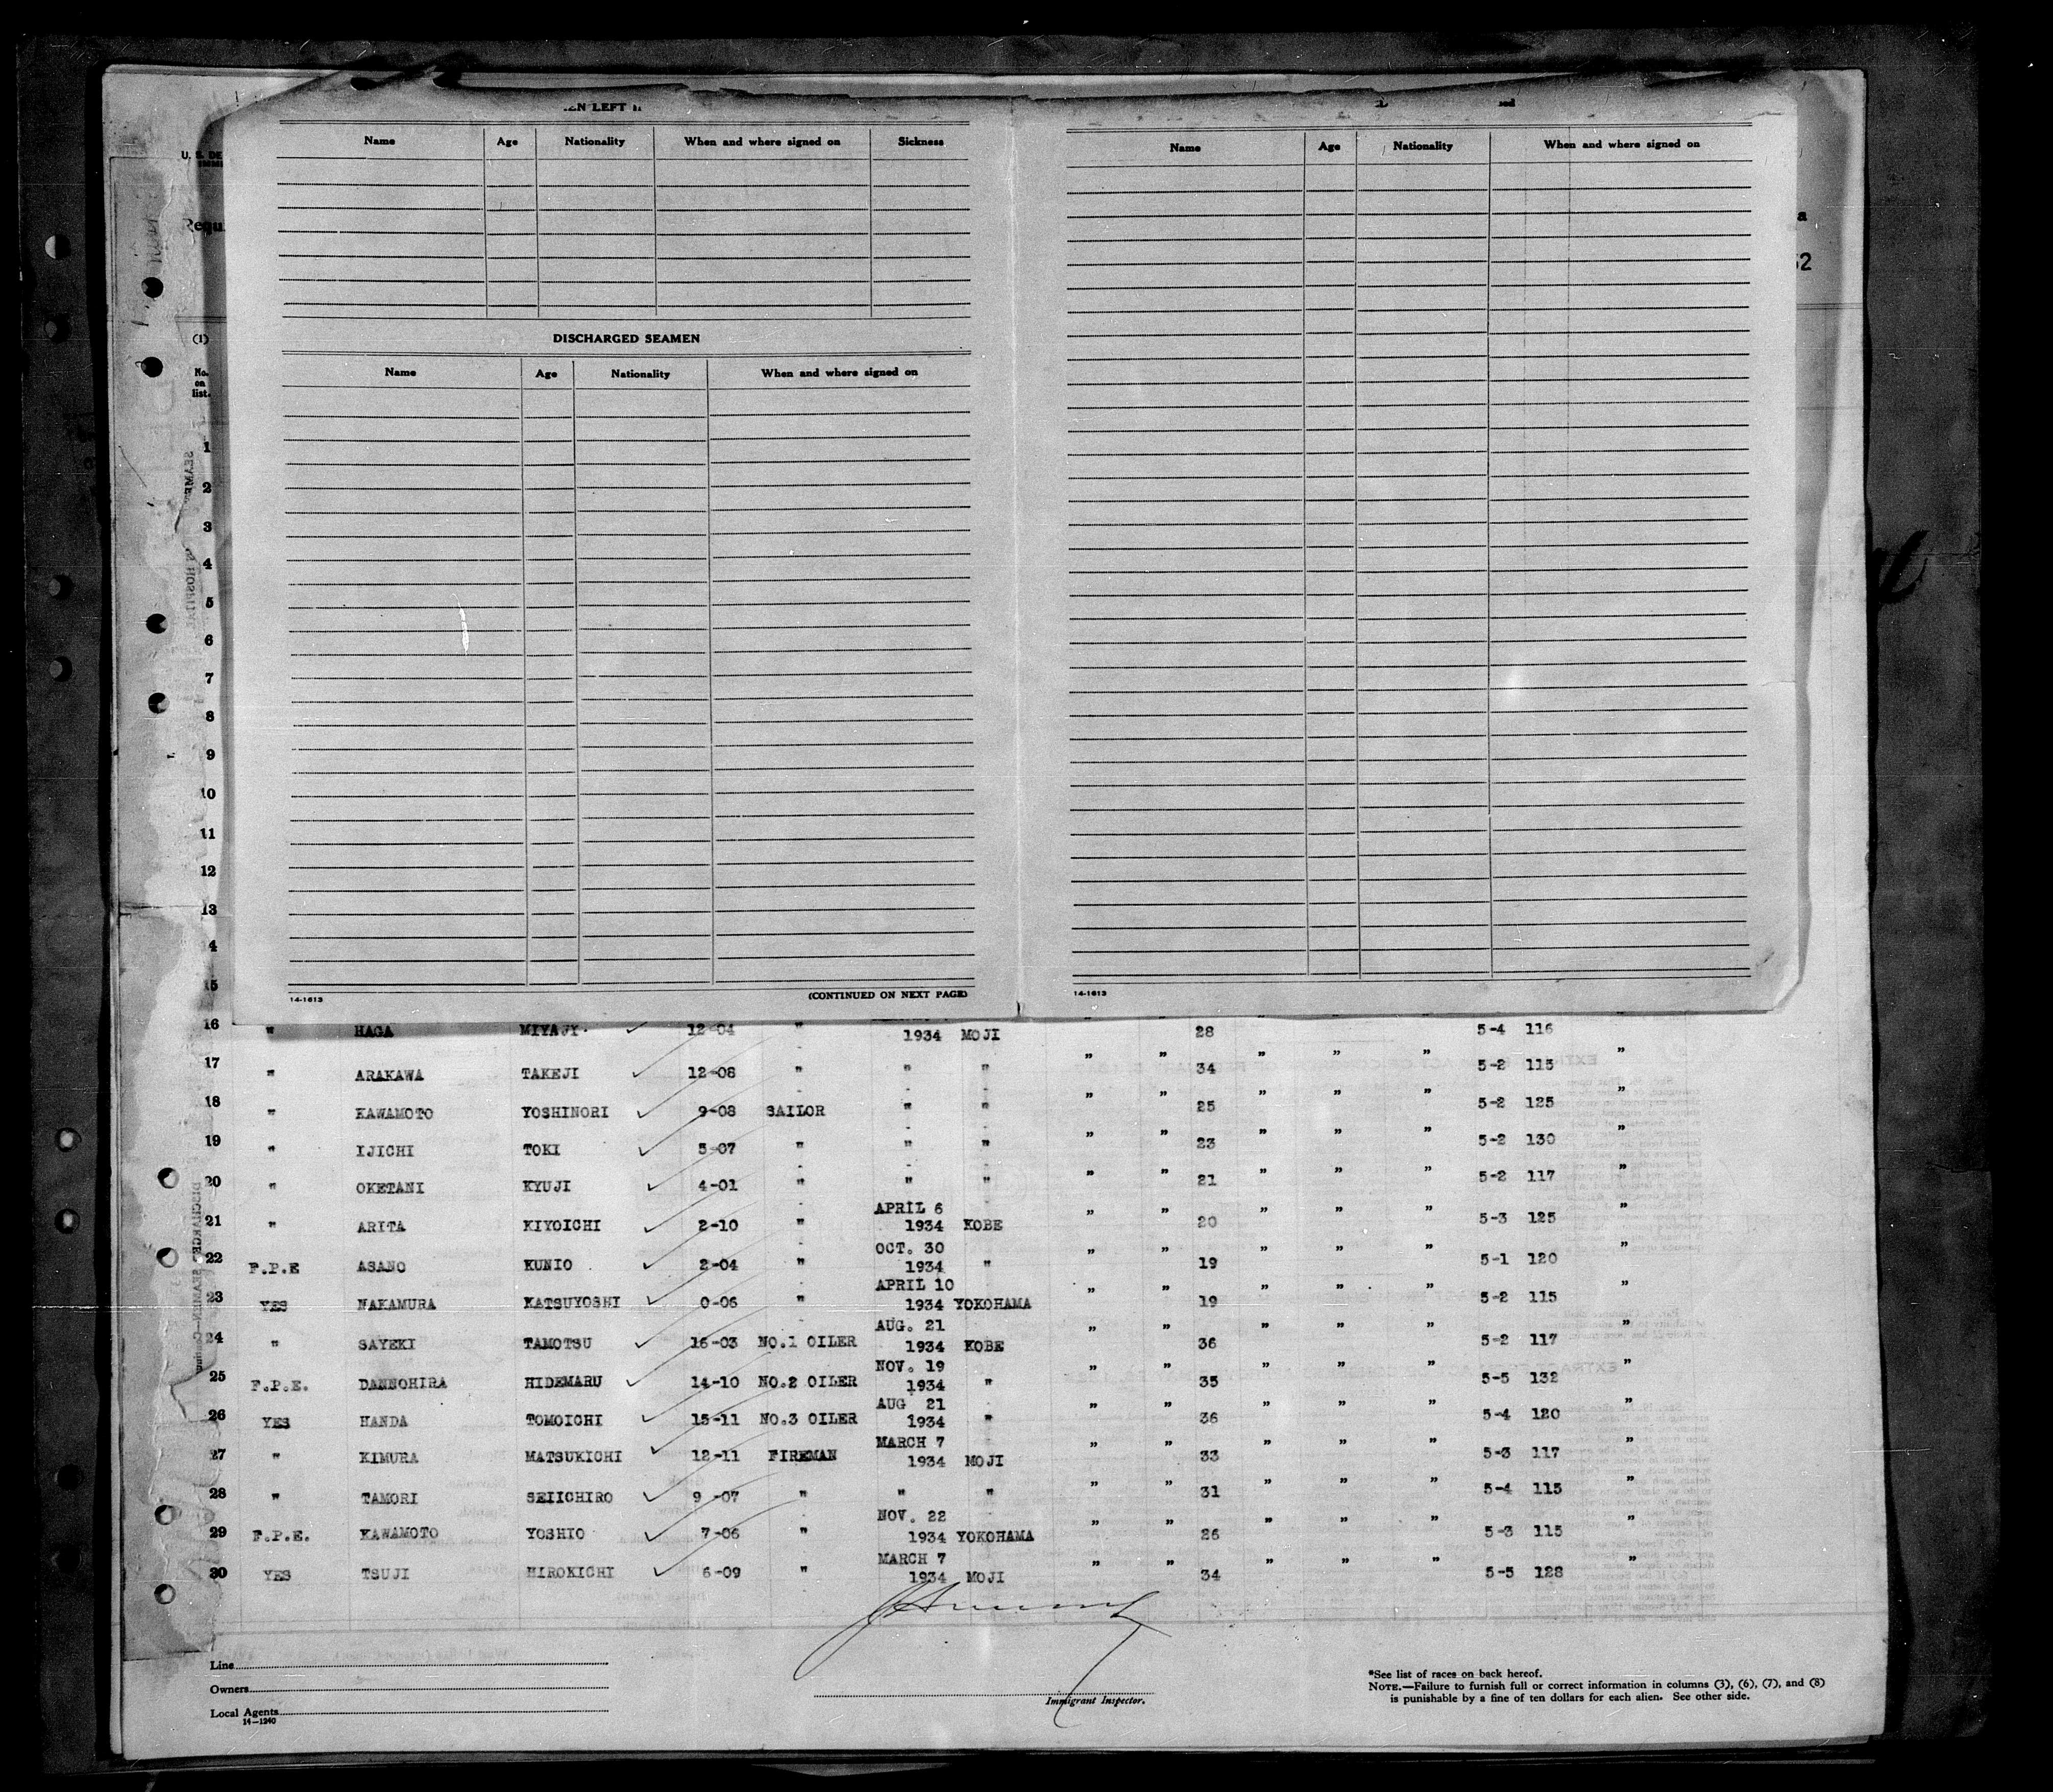 U. S. DE
Requ
(1)
No. on list.
LEFT
Name Age Nationality When and where signed on Sickness
DISCHARGED SEAMEN
Name Age Nationality When and where signed on
14-1613 (CONTINUED ON NEXT PAGE)
Name Age Nationality When and where signed on
14-1613
a
52
1
2
3
4
5
6
7
8
9
10
11
12
13
4
15
16 " HAGA MIYAJY 12-04 " 1934 MOJI 28 5-4 116
17 " ARAKAWA TAKEJI 12-08 " " " " " 34 " " " 5-2 115 "
18 " KAWAMOTO YOSHINORI 9-08 SAILOR " " " " 25 " " " 5-2 125 "
19 " IJICHI TOKI 5-07 " " " " " 23 " " " 5-2 130 "
20 " OKETANI KYUJI 4-01 " " " " " 21 " " " 5-2 117 "
21 " ARITA KIYOICHI 2-10 " APRIL 6 1934 KOBE " " 20 " " " 5-3 125 "
22 F.P.E ASANO KUNIO 2-04 " OCT. 30 1934 " " " 19 " " " 5-1 120 "
23 YES NAKAMURA KATSUYOSHI 0-06 " APRIL 10 1934 YOKOHAMA " " 19 " " " 5-2 115 "
24 " SAYEKI TAMOTSU 16-03 NO.1 OILER AUG. 21 1934 KOBE " " 36 " " " 5-2 117 "
25 F.P.E. DANNOHIRA HIDEMARU 14-10 NO.2 OILER NOV. 19 1934 " " " 35 " " " 5-5 132 "
26 YES HANDA TOMOICHI 15-11 NO.3 OILER AUG 21 1934 " " " 36 " " " 5-4 120 "
27 " KIMURA MATSUKICHI 12-11 FIREMAN MARCH 7 1934 MOJI " " 33 " " " 5-3 117 "
28 " TAMORI SEIICHIRO 9-07 " " " " " 31 " " " 5-4 115 "
29 F.P.E. KAWAMOTO YOSHIO 7-06 " NOV. 22 1934 YOKOHAMA " " 26 " " " 5-3 115 "
30 YES TSUJI HIROKICHI 6-09 " MARCH 7 1934 MOJI " " 34 " " " 5-5 128 "
Line
Owners
Local Agents
14-1240
Immigrant Inspector.
*See list of races on back hereof.
NOTE.—Failure to furnish full or correct information in columns (3), (6), (7), and (8)
is punishable by a fine of ten dollars for each alien. See other side.